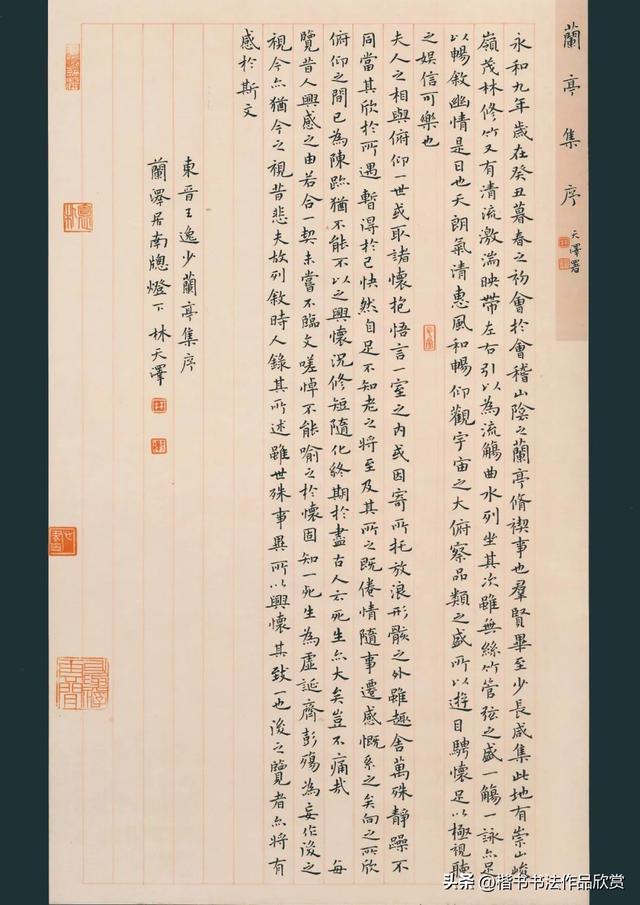 蘭亭集序
天澤署
永和九年歲在癸丑暮春之初會於會稽山陰之蘭亭脩禊事也羣賢畢至少長咸集此地有崇山峻
嶺茂林修竹又有清流激湍映帶左右引以為流觴曲水列坐其次雖無絲竹管弦之盛一觴一詠亦足
以暢敘幽情是日也天朗氣清惠風和暢仰觀宇宙之大俯察品類之盛所以遊目騁懷足以極視聽
之娛信可樂也
夫人之相與俯仰一世或取諸懷抱悟言一室之內或因寄所托放浪形骸之外雖趣舍萬殊靜躁不
同當其欣於所遇暫得於己快然自足不知老之將至及其所之既倦情隨事遷感慨系之矣向之所欣
俯仰之間已為陳跡猶不能不以之興懷況修短隨化終期於盡古人云死生亦大矣豈不痛哉 每
覽昔人興感之由若合一契未嘗不臨文嗟悼不能喻之於懷固知一死生為虛誕齊彭殤為妄作後之
視今亦猶今之視昔悲夫故列敘時人錄其所述雖世殊事異所以興懷其致一也後之覽者亦將有
感於斯文
東晉王逸少蘭亭集序
蘭澤居南牕燈下 林天澤
头条 @楷书书法作品欣赏